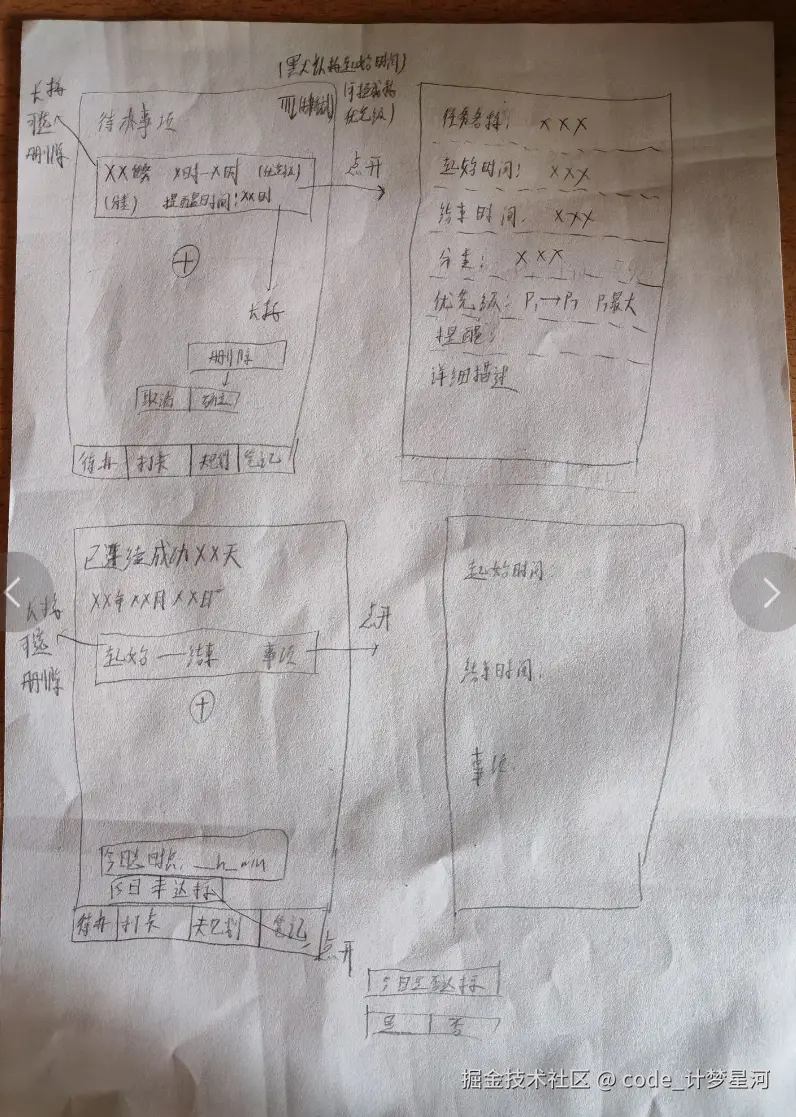 (默认按起始时间)
(可按成为
优先级)
长按
可选
删除
待办事项
XX事 X时—X时 (优先级)
(分类) 提醒时间:XX时
点开
长按
删除
取消 确定
待办 打卡 规划 笔记
任务名称: XXX
起始时间: XXX
结束时间: XXX
分类: XXX
优先级: P₁→P₃ P₁最大
提醒:
详细描述
已连续成功XX天
XX年XX月XX日
长按
可选
删除
起始—结束 事项
点开
今日总时长: _h_min
今日未达标
待办 打卡 规划 笔记
点开
起始时间:
结束时间:
事项:
今日是否达标
是 否
掘金技术社区 @ code_计梦星河